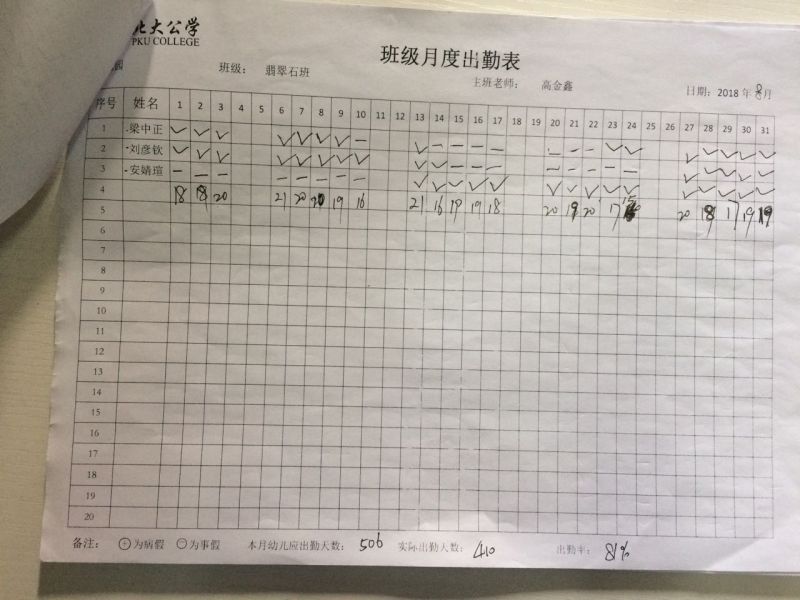 北大公学
PKU COLLEGE
班级月度出勤表
园 班级： 翡翠石班 主班老师： 高金鑫 日期：2018 年 8 月
序号 姓名 1 2 3 4 5 6 7 8 9 10 11 12 13 14 15 16 17 18 19 20 21 22 23 24 25 26 27 28 29 30 31
1 梁中正 ✓ ✓ ✓ ✓ ✓ ✓ ✓ — ✓ — — — — — — — ✓ ✓ ✓ ✓ ✓ ✓ ✓
2 刘彦钦 ✓ ✓ ✓ ✓ ✓ ✓ ✓ ✓ ✓ ✓ — — — — — — — — ✓ ✓ ✓ ✓ ✓
3 安婧瑄 — — — — — — — — ✓ ✓ ✓ ✓ ✓ ✓ ✓ ✓ ✓ ✓ ✓ ✓ ✓ ✓ ✓
4 18 18 20 21 20 20 19 16 21 16 19 19 18 20 19 20 17 20 18 17 19 19
5
6
7
8
9
10
11
12
13
14
15
16
17
18
19
20
备注： ⊕为病假 ⊖为事假 本月幼儿应出勤人数： 506 实际出勤人数： 410 出勤率： 81%